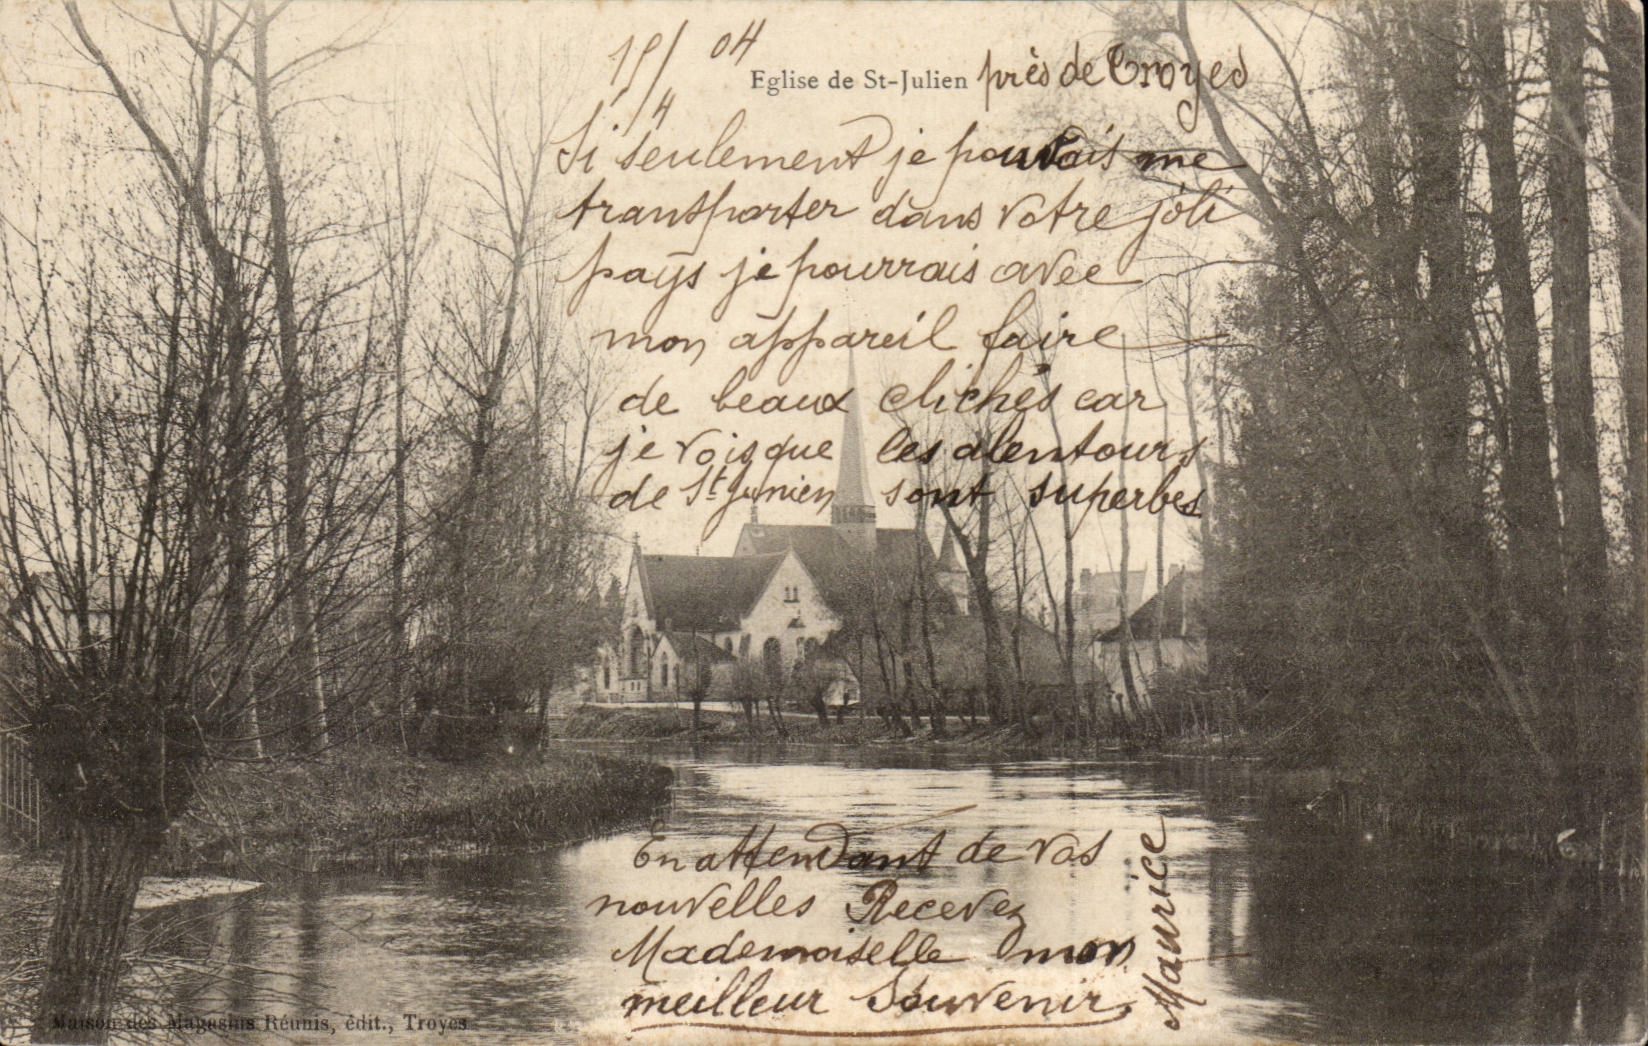 15/4 04
Eglise de St-Julien près de Troyes
Si seulement je pouvais me
transporter dans votre joli
pays je pourrais avec
mon appareil faire
de beaux clichés car
je vois que les alentours
de St Junien sont superbes
En attendant de vos
nouvelles Recevez
Mademoiselle mon
meilleur Souvenir
Maurice
Maison des Magasins Réunis, édit., Troyes